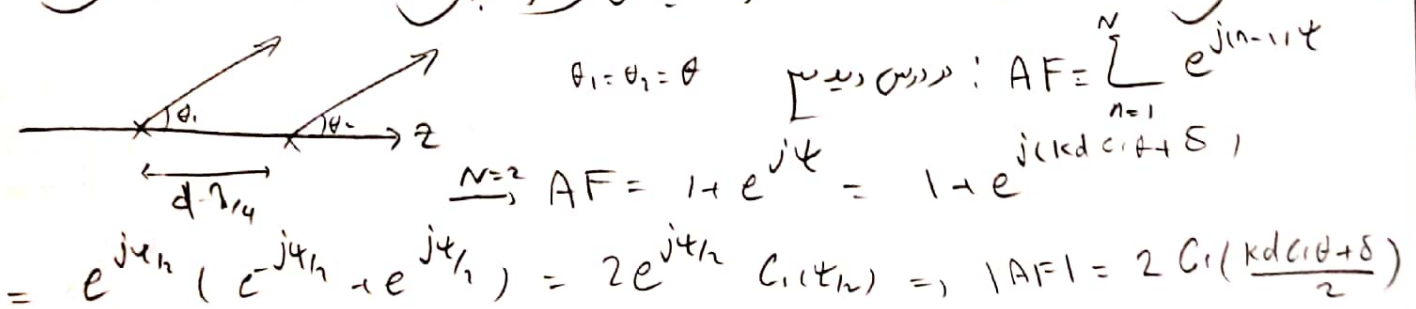 θ₁ = θ₂ = θ در درس دیدیم : AF = Σ_{n=1}^{N} e^{j(n-1)ψ}
θ₁ θ₂ z
d = λ/4
N=2 ⇒ AF = 1 + e^{jψ} = 1 + e^{j(kd cosθ + δ)}
= e^{jψ/2} ( e^{-jψ/2} + e^{jψ/2} ) = 2e^{jψ/2} Cos(ψ/2) ⇒ |AF| = 2 Cos( (kd cosθ + δ)/2 )